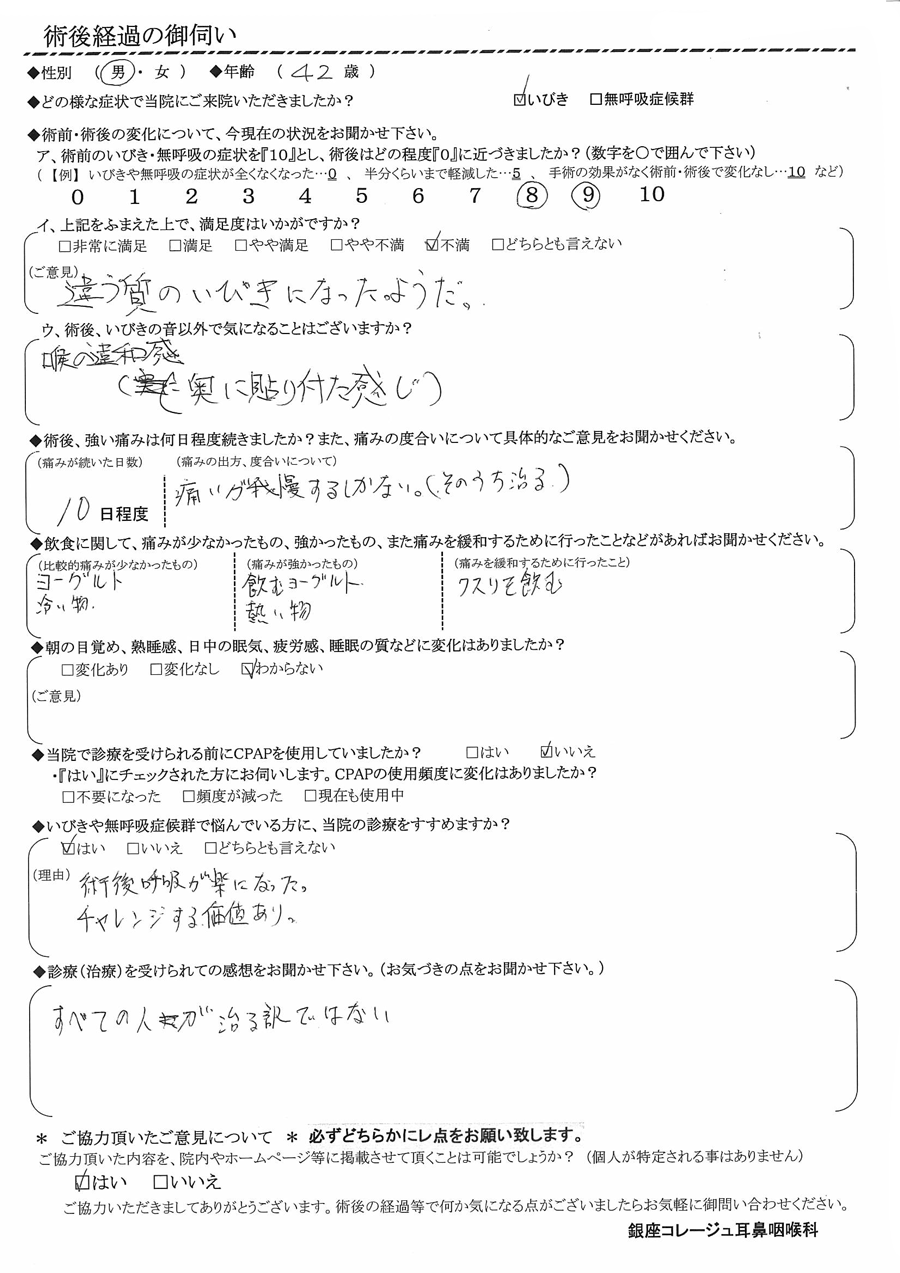 術後経過の御伺い
◆性別 （ 男 ・ 女 ） ◆年齢 （ 42 歳 ）
◆どの様な症状で当院にご来院いただきましたか？ ☑いびき □無呼吸症候群
◆術前・術後の変化について、今現在の状況をお聞かせ下さい。
ア、術前のいびき・無呼吸の症状を『10』とし、術後はどの程度『0』に近づきましたか？（数字を○で囲んで下さい）
（【例】いびきや無呼吸の症状が全くなくなった…0 、 半分くらいまで軽減した…5 、 手術の効果がなく術前・術後で変化なし…10 など）
0 1 2 3 4 5 6 7 8 9 10
イ、上記をふまえた上で、満足度はいかがですか？
□非常に満足 □満足 □やや満足 □やや不満 ☑不満 □どちらとも言えない
（ご意見）
違う質のいびきになったようだ。
ウ、術後、いびきの音以外で気になることはございますか？
喉の違和感
（奥に貼り付た感じ）
◆術後、強い痛みは何日程度続きましたか？また、痛みの度合いについて具体的なご意見をお聞かせください。
（痛みが続いた日数） （痛みの出方、度合いについて）
10 日程度 痛いが我慢するしかない。（そのうち治る）
◆飲食に関して、痛みが少なかったもの、強かったもの、また痛みを緩和するために行ったことなどがあればお聞かせください。
（比較的痛みが少なかったもの） （痛みが強かったもの） （痛みを緩和するために行ったこと）
ヨーグルト 飲むヨーグルト クスリを飲む
冷い物 熱い物
◆朝の目覚め、熟睡感、日中の眠気、疲労感、睡眠の質などに変化はありましたか？
□変化あり □変化なし ☑わからない
（ご意見）
◆当院で診療を受けられる前にCPAPを使用していましたか？ □はい ☑いいえ
・『はい』にチェックされた方にお伺いします。CPAPの使用頻度に変化はありましたか？
□不要になった □頻度が減った □現在も使用中
◆いびきや無呼吸症候群で悩んでいる方に、当院の診療をすすめますか？
☑はい □いいえ □どちらとも言えない
（理由） 術後呼吸が楽になった。
チャレンジする価値あり。
◆診療（治療）を受けられての感想をお聞かせ下さい。（お気づきの点をお聞かせ下さい。）
すべての人が治る訳ではない
＊ ご協力頂いたご意見について ＊ 必ずどちらかにレ点をお願い致します。
ご協力頂いた内容を、院内やホームページ等に掲載させて頂くことは可能でしょうか？ （個人が特定される事はありません）
☑はい □いいえ
ご協力いただきましてありがとうございます。術後の経過等で何か気になる点がございましたらお気軽に御問い合わせください。
銀座コレージュ耳鼻咽喉科